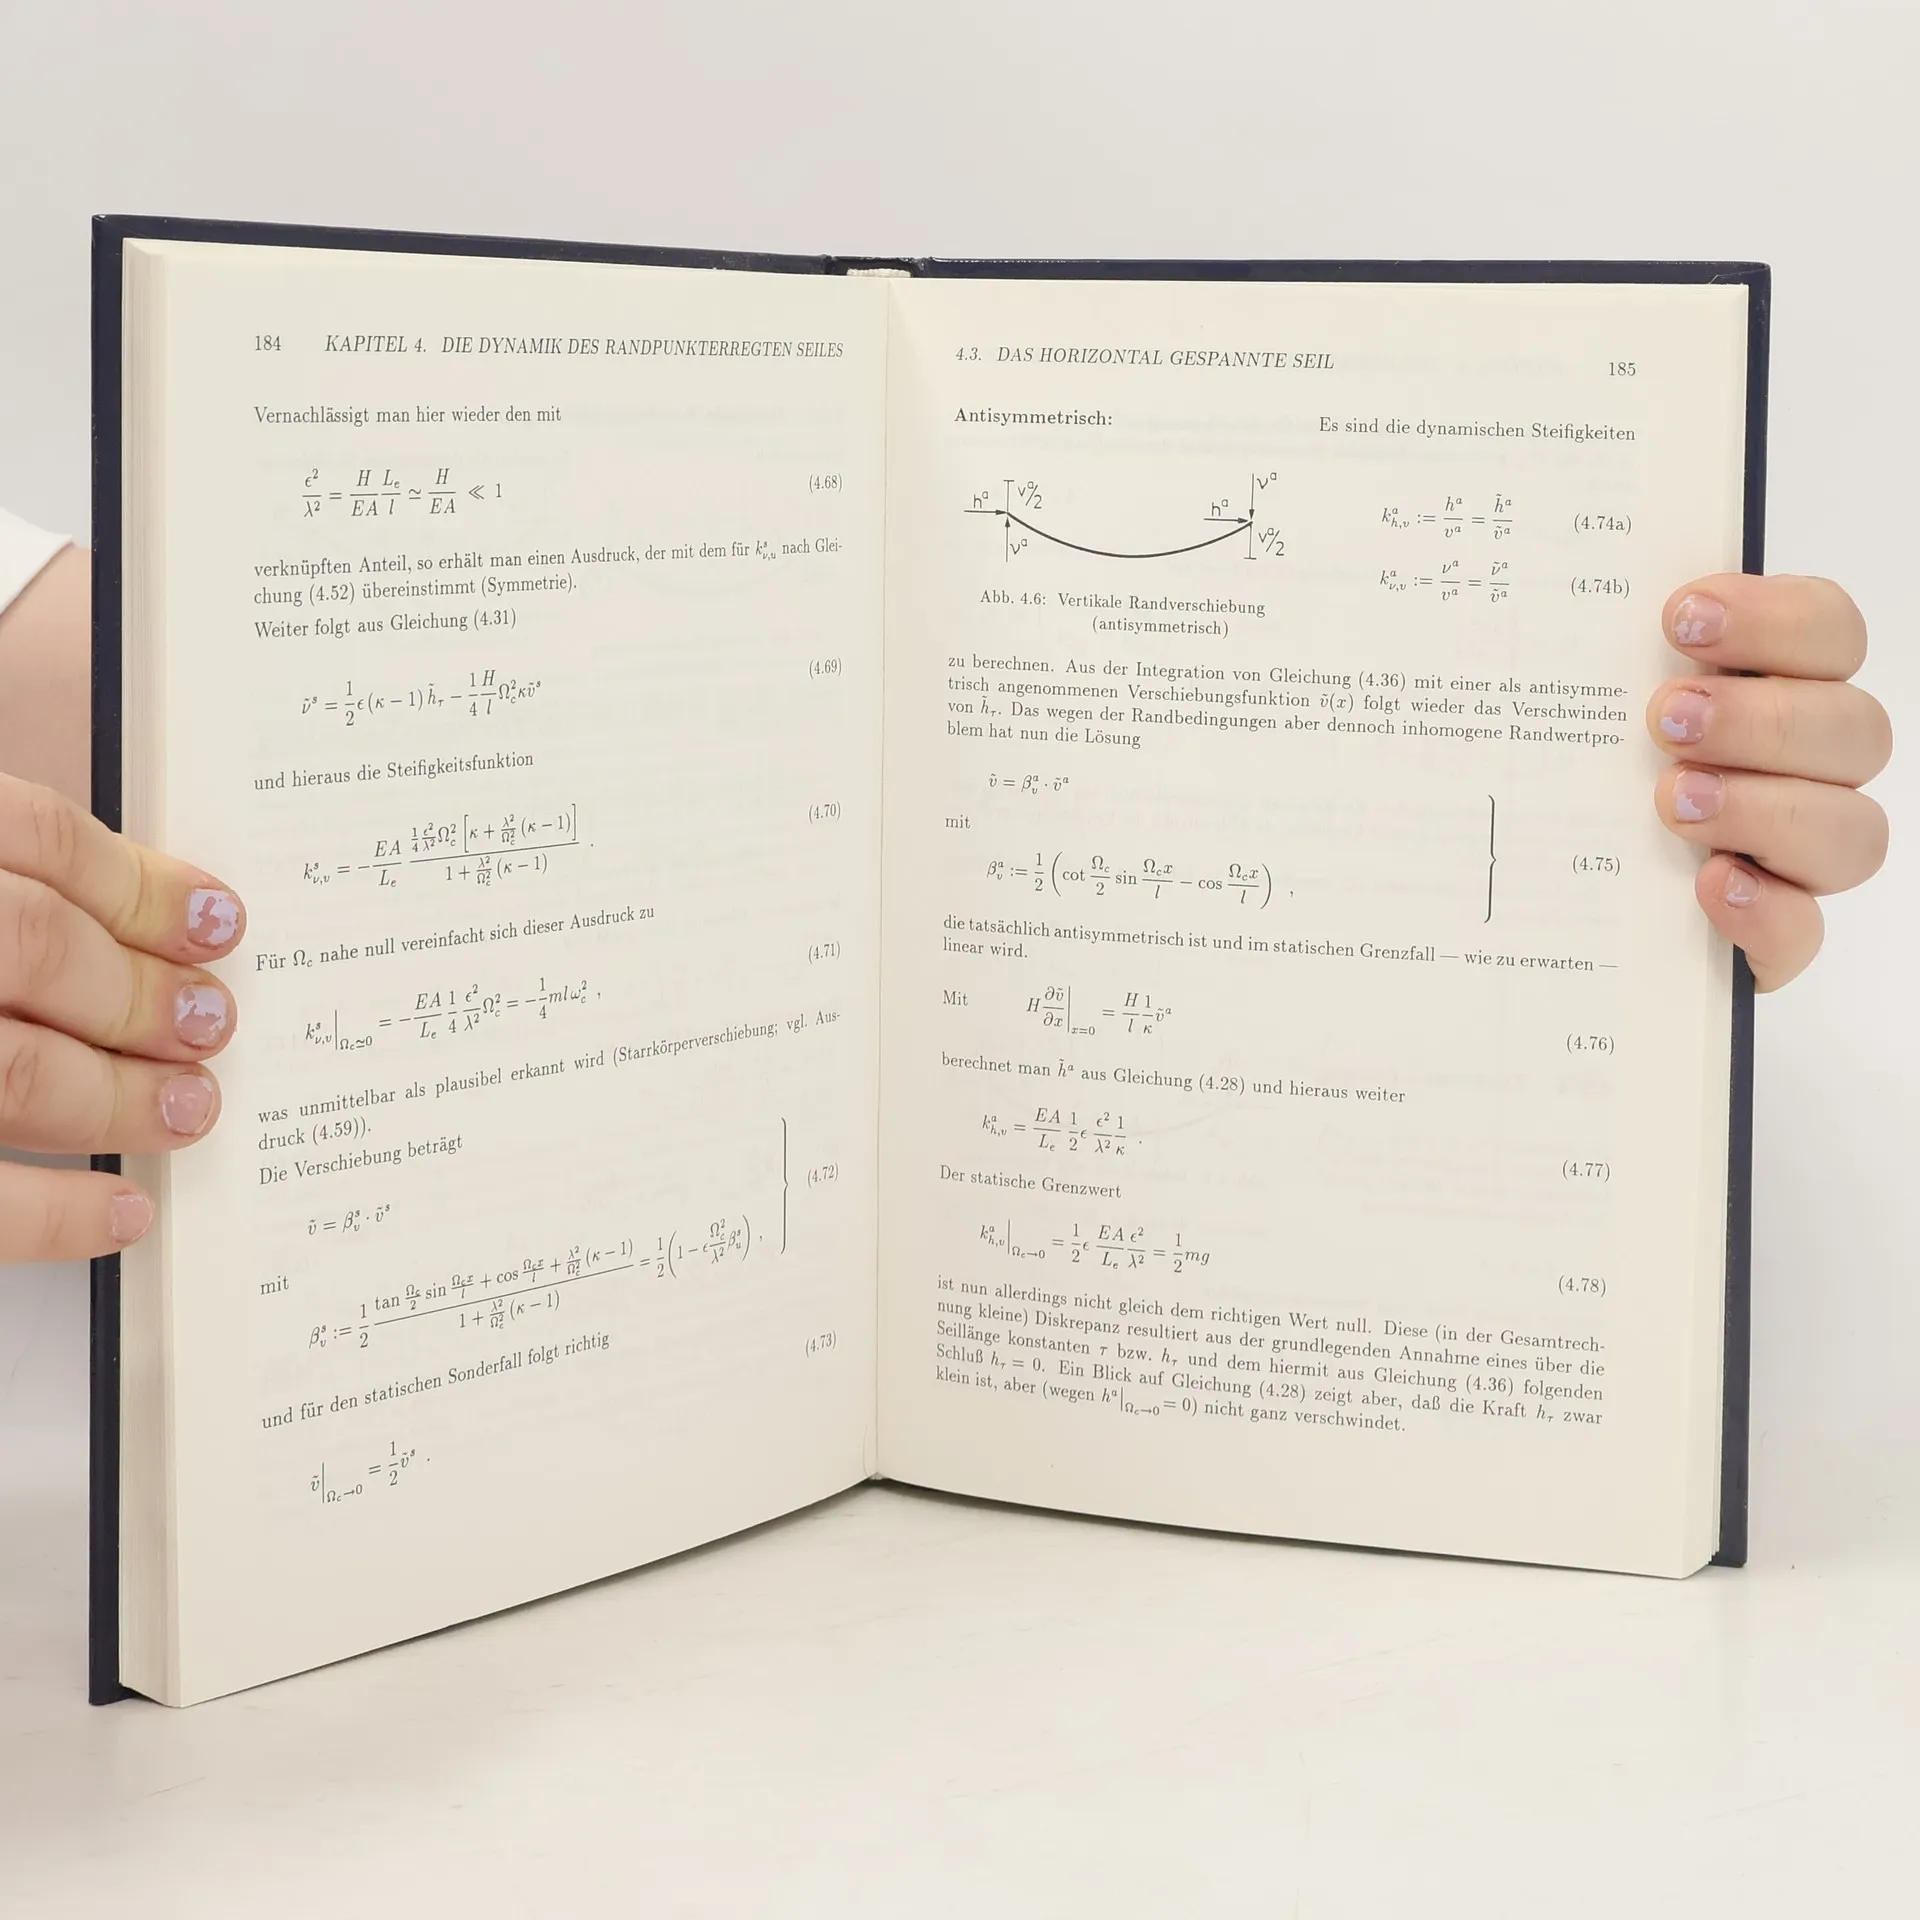 184 KAPITEL 4. DIE DYNAMIK DES RANDPUNKTERREGTEN SEILES
Vernachlässigt man hier wieder den mit
ϵ²/λ² = H/EA Lₑ/l ≃ H/EA ≪ 1 (4.68)
verknüpften Anteil, so erhält man einen Ausdruck, der mit dem für kˢ_{ν,u} nach Glei-
chung (4.52) übereinstimmt (Symmetrie).
Weiter folgt aus Gleichung (4.31)
ν̃ˢ = 1/2 ϵ(κ − 1) h̃_τ − 1/4 H/l Ω_c² κṽˢ (4.69)
und hieraus die Steifigkeitsfunktion
kˢ_{ν,v} = − EA/Lₑ (1/4 ϵ²/λ² Ω_c² [κ + λ²/Ω_c² (κ − 1)]) / (1 + λ²/Ω_c² (κ − 1)) . (4.70)
Für Ω_c nahe null vereinfacht sich dieser Ausdruck zu
kˢ_{ν,v}|_{Ω_c≃0} = − EA/Lₑ 1/4 ϵ²/λ² Ω_c² = − 1/4 mlω_c² , (4.71)
was unmittelbar als plausibel erkannt wird (Starrkörperverschiebung; vgl. Aus-
druck (4.59)).
Die Verschiebung beträgt
ṽ = βˢ_v · ṽˢ
mit (4.72)
βˢ_v := 1/2 (tan Ω_c/2 sin Ω_c x/l + cos Ω_c x/l + λ²/Ω_c² (κ − 1)) / (1 + λ²/Ω_c² (κ − 1)) = 1/2 (1 − ϵ Ω_c²/λ² βˢ_u) ,
und für den statischen Sonderfall folgt richtig
ṽ|_{Ω_c→0} = 1/2 ṽˢ . (4.73)
4.3. DAS HORIZONTAL GESPANNTE SEIL 185
Antisymmetrisch: Es sind die dynamischen Steifigkeiten
hᵃ vᵃ/2 νᵃ
hᵃ νᵃ vᵃ/2
Abb. 4.6: Vertikale Randverschiebung
(antisymmetrisch)
kᵃ_{h,v} := hᵃ/vᵃ = h̃ᵃ/ṽᵃ (4.74a)
kᵃ_{ν,v} := νᵃ/vᵃ = ν̃ᵃ/ṽᵃ (4.74b)
zu berechnen. Aus der Integration von Gleichung (4.36) mit einer als antisymme-
trisch angenommenen Verschiebungsfunktion ṽ(x) folgt wieder das Verschwinden
von h̃_τ. Das wegen der Randbedingungen aber dennoch inhomogene Randwertpro-
blem hat nun die Lösung
ṽ = βᵃ_v · ṽᵃ
mit (4.75)
βᵃ_v := 1/2 (cot Ω_c/2 sin Ω_c x/l − cos Ω_c x/l) ,
die tatsächlich antisymmetrisch ist und im statischen Grenzfall — wie zu erwarten —
linear wird.
Mit H ∂ṽ/∂x|_{x=0} = H/l 1/κ ṽᵃ (4.76)
berechnet man h̃ᵃ aus Gleichung (4.28) und hieraus weiter
kᵃ_{h,v} = EA/Lₑ 1/2 ϵ ϵ²/λ² 1/κ . (4.77)
Der statische Grenzwert
kᵃ_{h,v}|_{Ω_c→0} = 1/2 ϵ EA/Lₑ ϵ²/λ² = 1/2 mg (4.78)
ist nun allerdings nicht gleich dem richtigen Wert null. Diese (in der Gesamtrech-
nung kleine) Diskrepanz resultiert aus der grundlegenden Annahme eines über die
Seillänge konstanten τ bzw. h_τ und dem hiermit aus Gleichung (4.36) folgenden
Schluß h_τ = 0. Ein Blick auf Gleichung (4.28) zeigt aber, daß die Kraft h_τ zwar
klein ist, aber (wegen hᵃ|_{Ω_c→0} = 0) nicht ganz verschwindet.